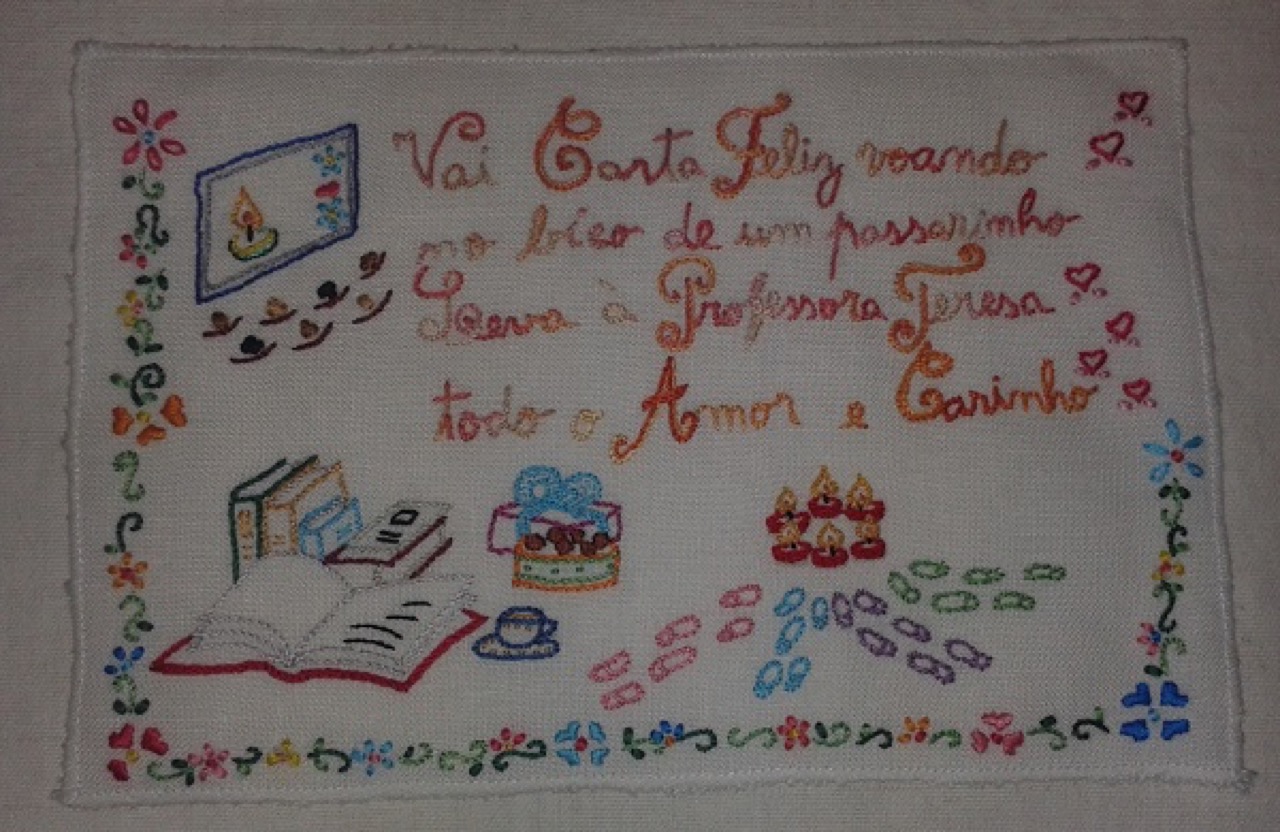 Vai Carta Feliz voando
no bico de um passarinho
Leva à Professora Teresa
todo o Amor e Carinho